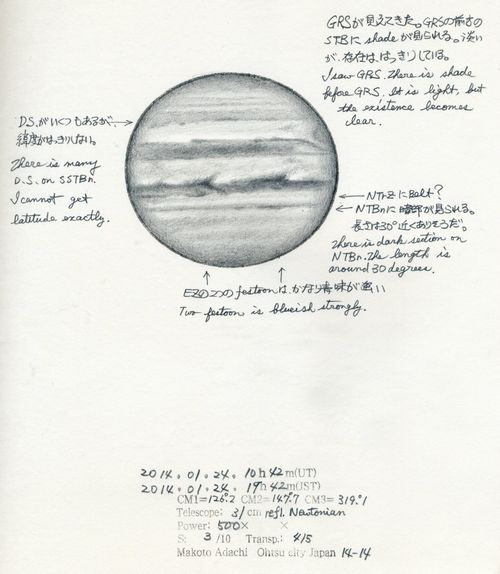 GRSが見えてきた。GRSの前方の
STBに shade が見られる。淡い
が、存在は、はっきりしている。
I saw GRS. There is shade
before GRS. It is light, but
the existence becomes
clear.
D.S.がいくつもあるが、
緯度がはっきりしない。
There is many
D.S. on SSTBn.
I cannot get
latitude exactly.
NTrZ に Belt?
NTBnに暗部が見られる。
長さは30°近くありそうだ。
There is dark section on
NTBn. The length is
around 30 degrees.
EZの2つの festoonは、かなり青味が強い
Two festoon is blueish strongly.
2014. 01. 24. 10h 42m(UT)
2014. 01. 24. 19h 42m(JST)
CM1=126.°2 CM2=147.°7 CM3= 319.°1
Telescope: 31cm refl. Newtonian
Power: 500× ×
S: 3/10 Transp.: 4/5
Makoto Adachi Ohtsu city Japan 14-14